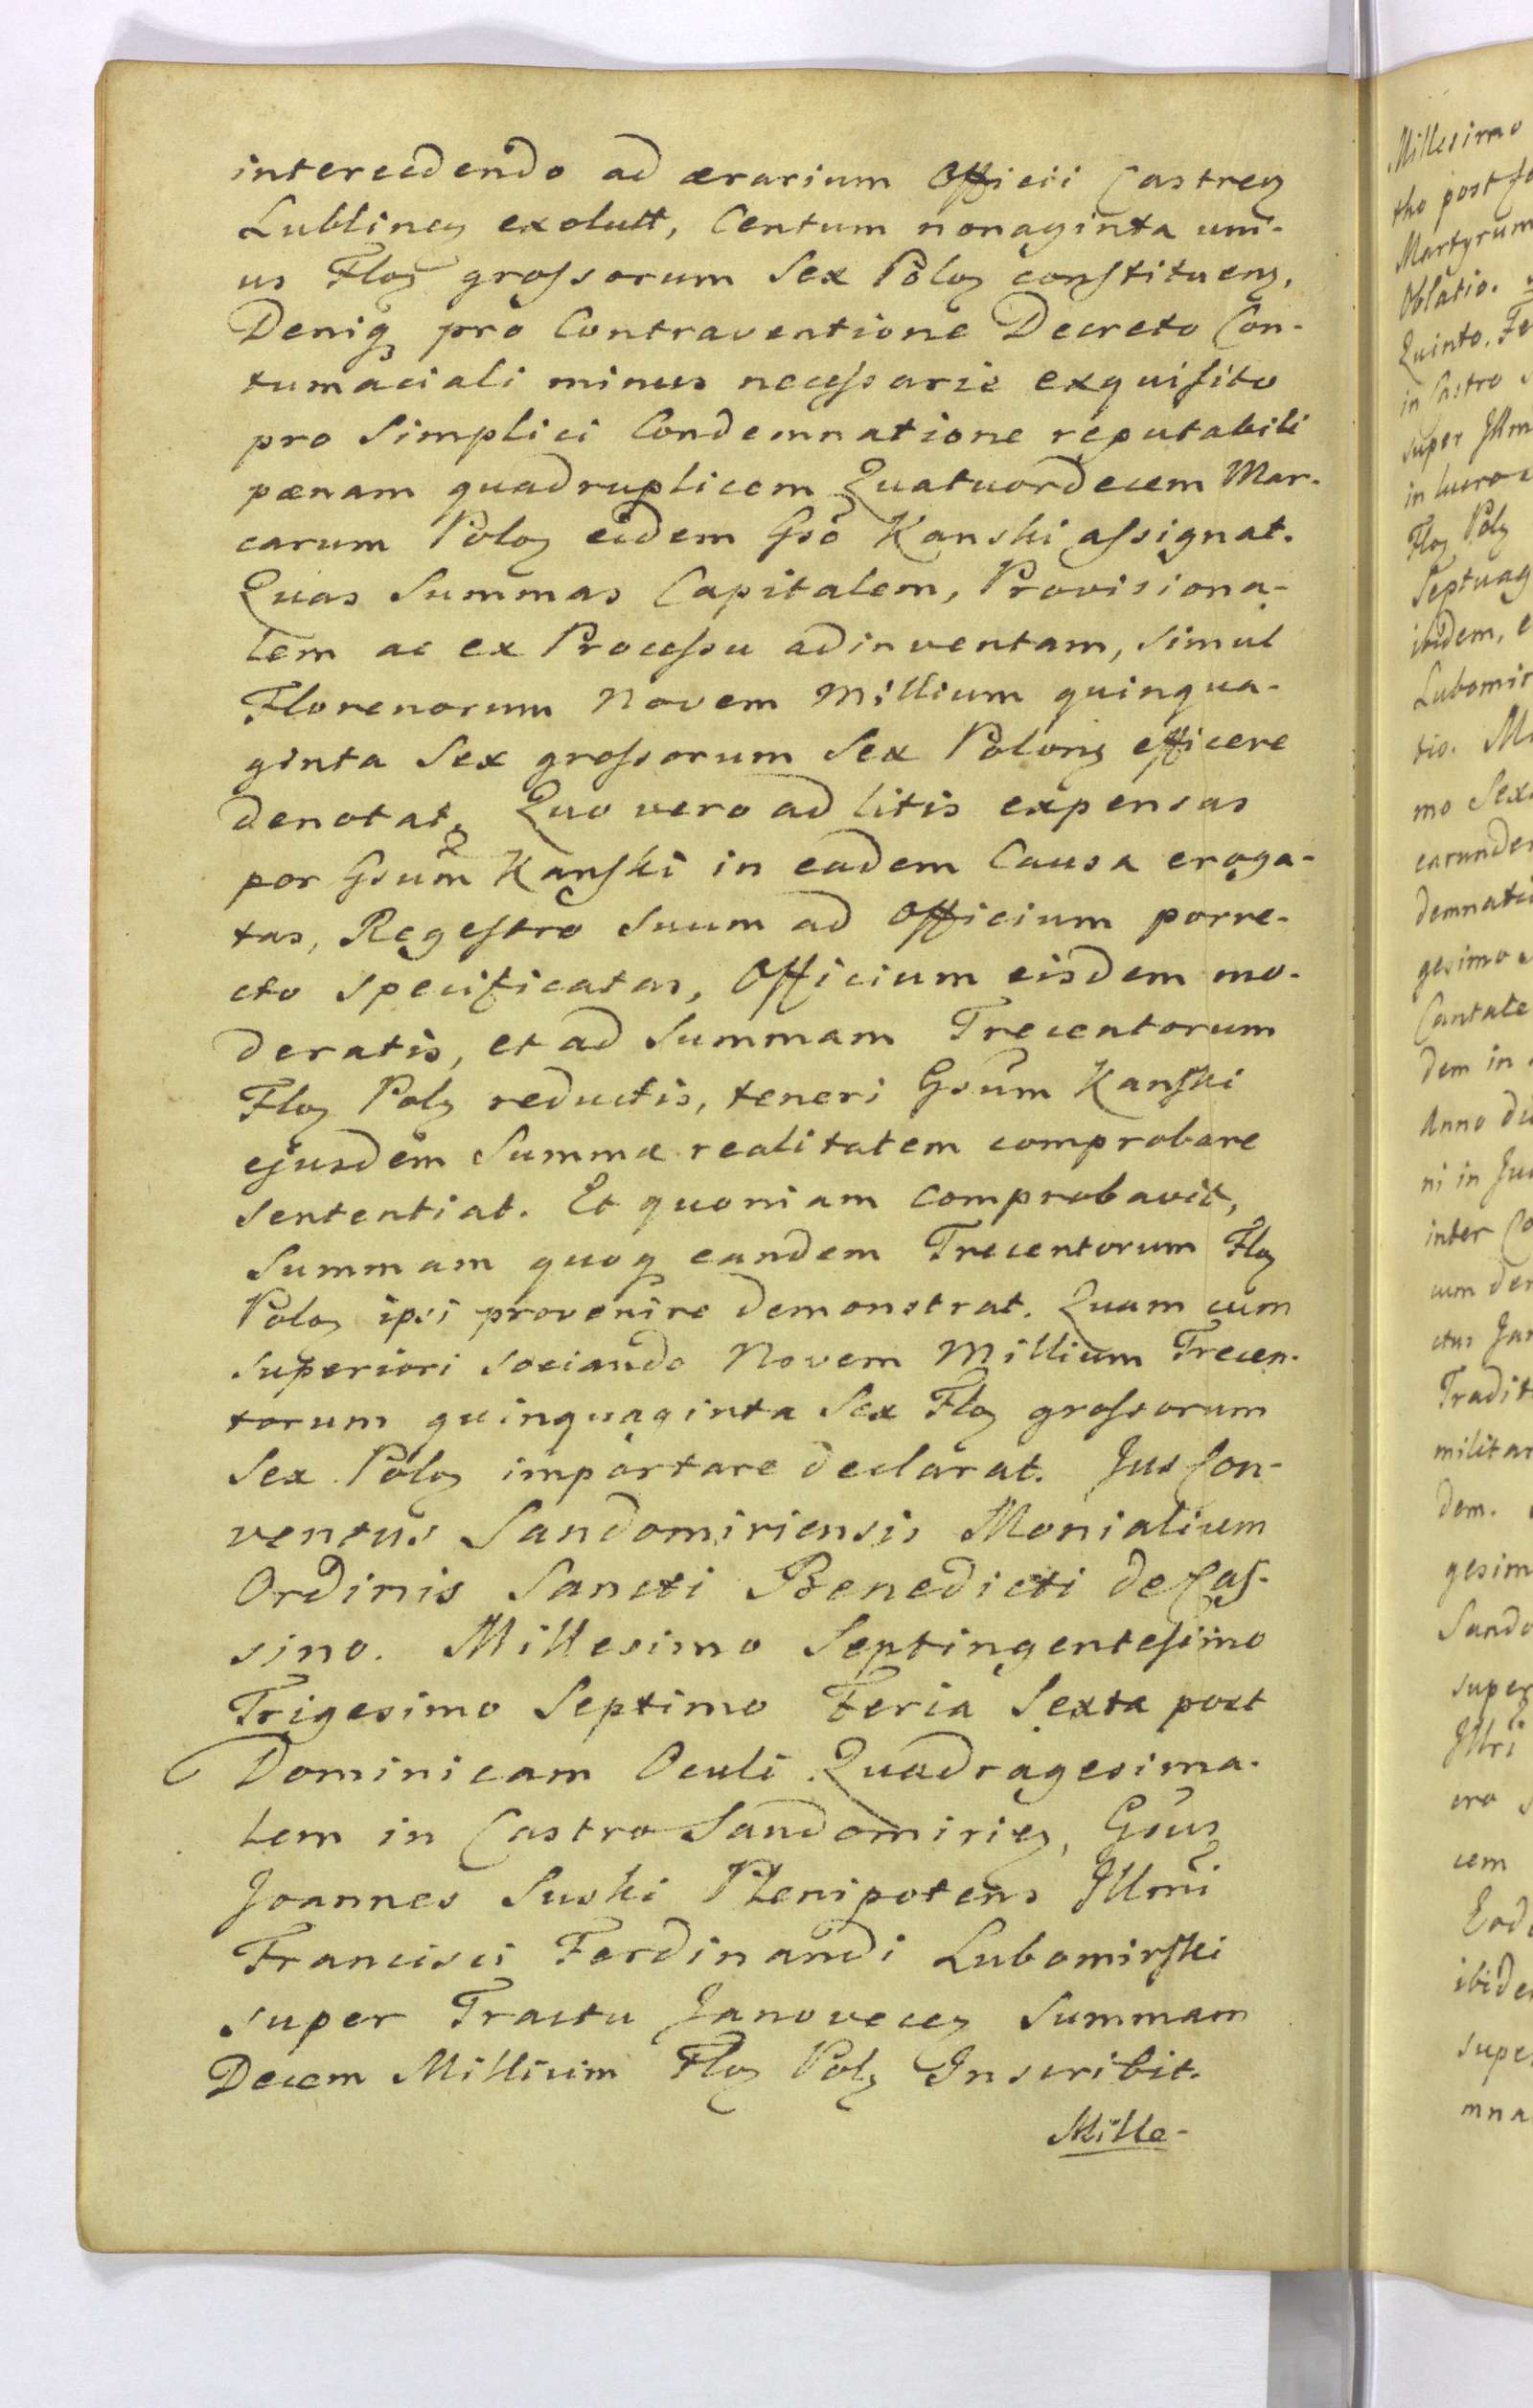 intercedendo ad ærarium Officii Castreꝫ
Lublineꝫ exolutt, Centum nonaginta uni-
us Floꝫ grossorum Sex Poloꝫ constitueꝫ.
Deniqꝫ pro Contraventione Decreto Con-
tumaciali minus necessarie exquisito
pro Simplici Condemnatione reputabili
pænam quadruplicem Quatuordecem Mar-
carum Poloꝫ eidem Gso Kanski assignat.
Quas Summas Capitalem, Provisiona-
lem ac ex Processu adinventam, simul
Florenorum Novem Millium quinqua-
ginta Sex grossorum Sex Poloniꝫ efficere
denotat. Quo vero ad litis expensas
por Gsum Kanski in eadem Causa eroga-
tas, Regestro Suum ad Officium porre-
cto specificatas, Officium eisdem mo-
deratis, et ad Summam Trecentorum
Floꝫ Polꝫ reductis, teneri Gsum Kanski
ejusdem Summæ realitatem comprobare
sententiat. Et quoniam comprobavit,
Summam quoqꝫ eandem Trecentorum Floꝫ
Poloꝫ ipsi provenire demonstrat. Quam cum
superiori sociando Novem Millium Trecen-
torum quinquaginta Sex Floꝫ grossorum
Sex Poloꝫ importare declarat. Jus Con-
ventus Sandomiriensis Monialium
Ordinis Sancti Benedicti de Cas-
sino. Millesimo Septingentesimo
Trigesimo Septimo Feria Sexta post
Dominicam Oculi Quadragesima-
lem in Castro Sandomirieꝫ, Gsus
Joannes Suski Plenipotens Illmi
Francisci Ferdinandi Lubomirski
super Tractu Janoveceꝫ Summam
Decem Millium Floꝫ Polꝫ Inscribit.
Mille-
Millesimo
tho post
Martyrum
Oblatio.
Quinto. Fe
in Castro
super Illm
in lucro
Floꝫ Polꝫ
Septuag
ibidem, e
Lubomir
tio. Mi
mo Sex
earundem
demnati
gesimo
Cantate
dem in
Anno
ni in Ju
inter Co
cum der
ctus Jan
Tradit
militar
dem.
gesim
Sando
super
Illri
cem
Eod
ibide
supe
mna